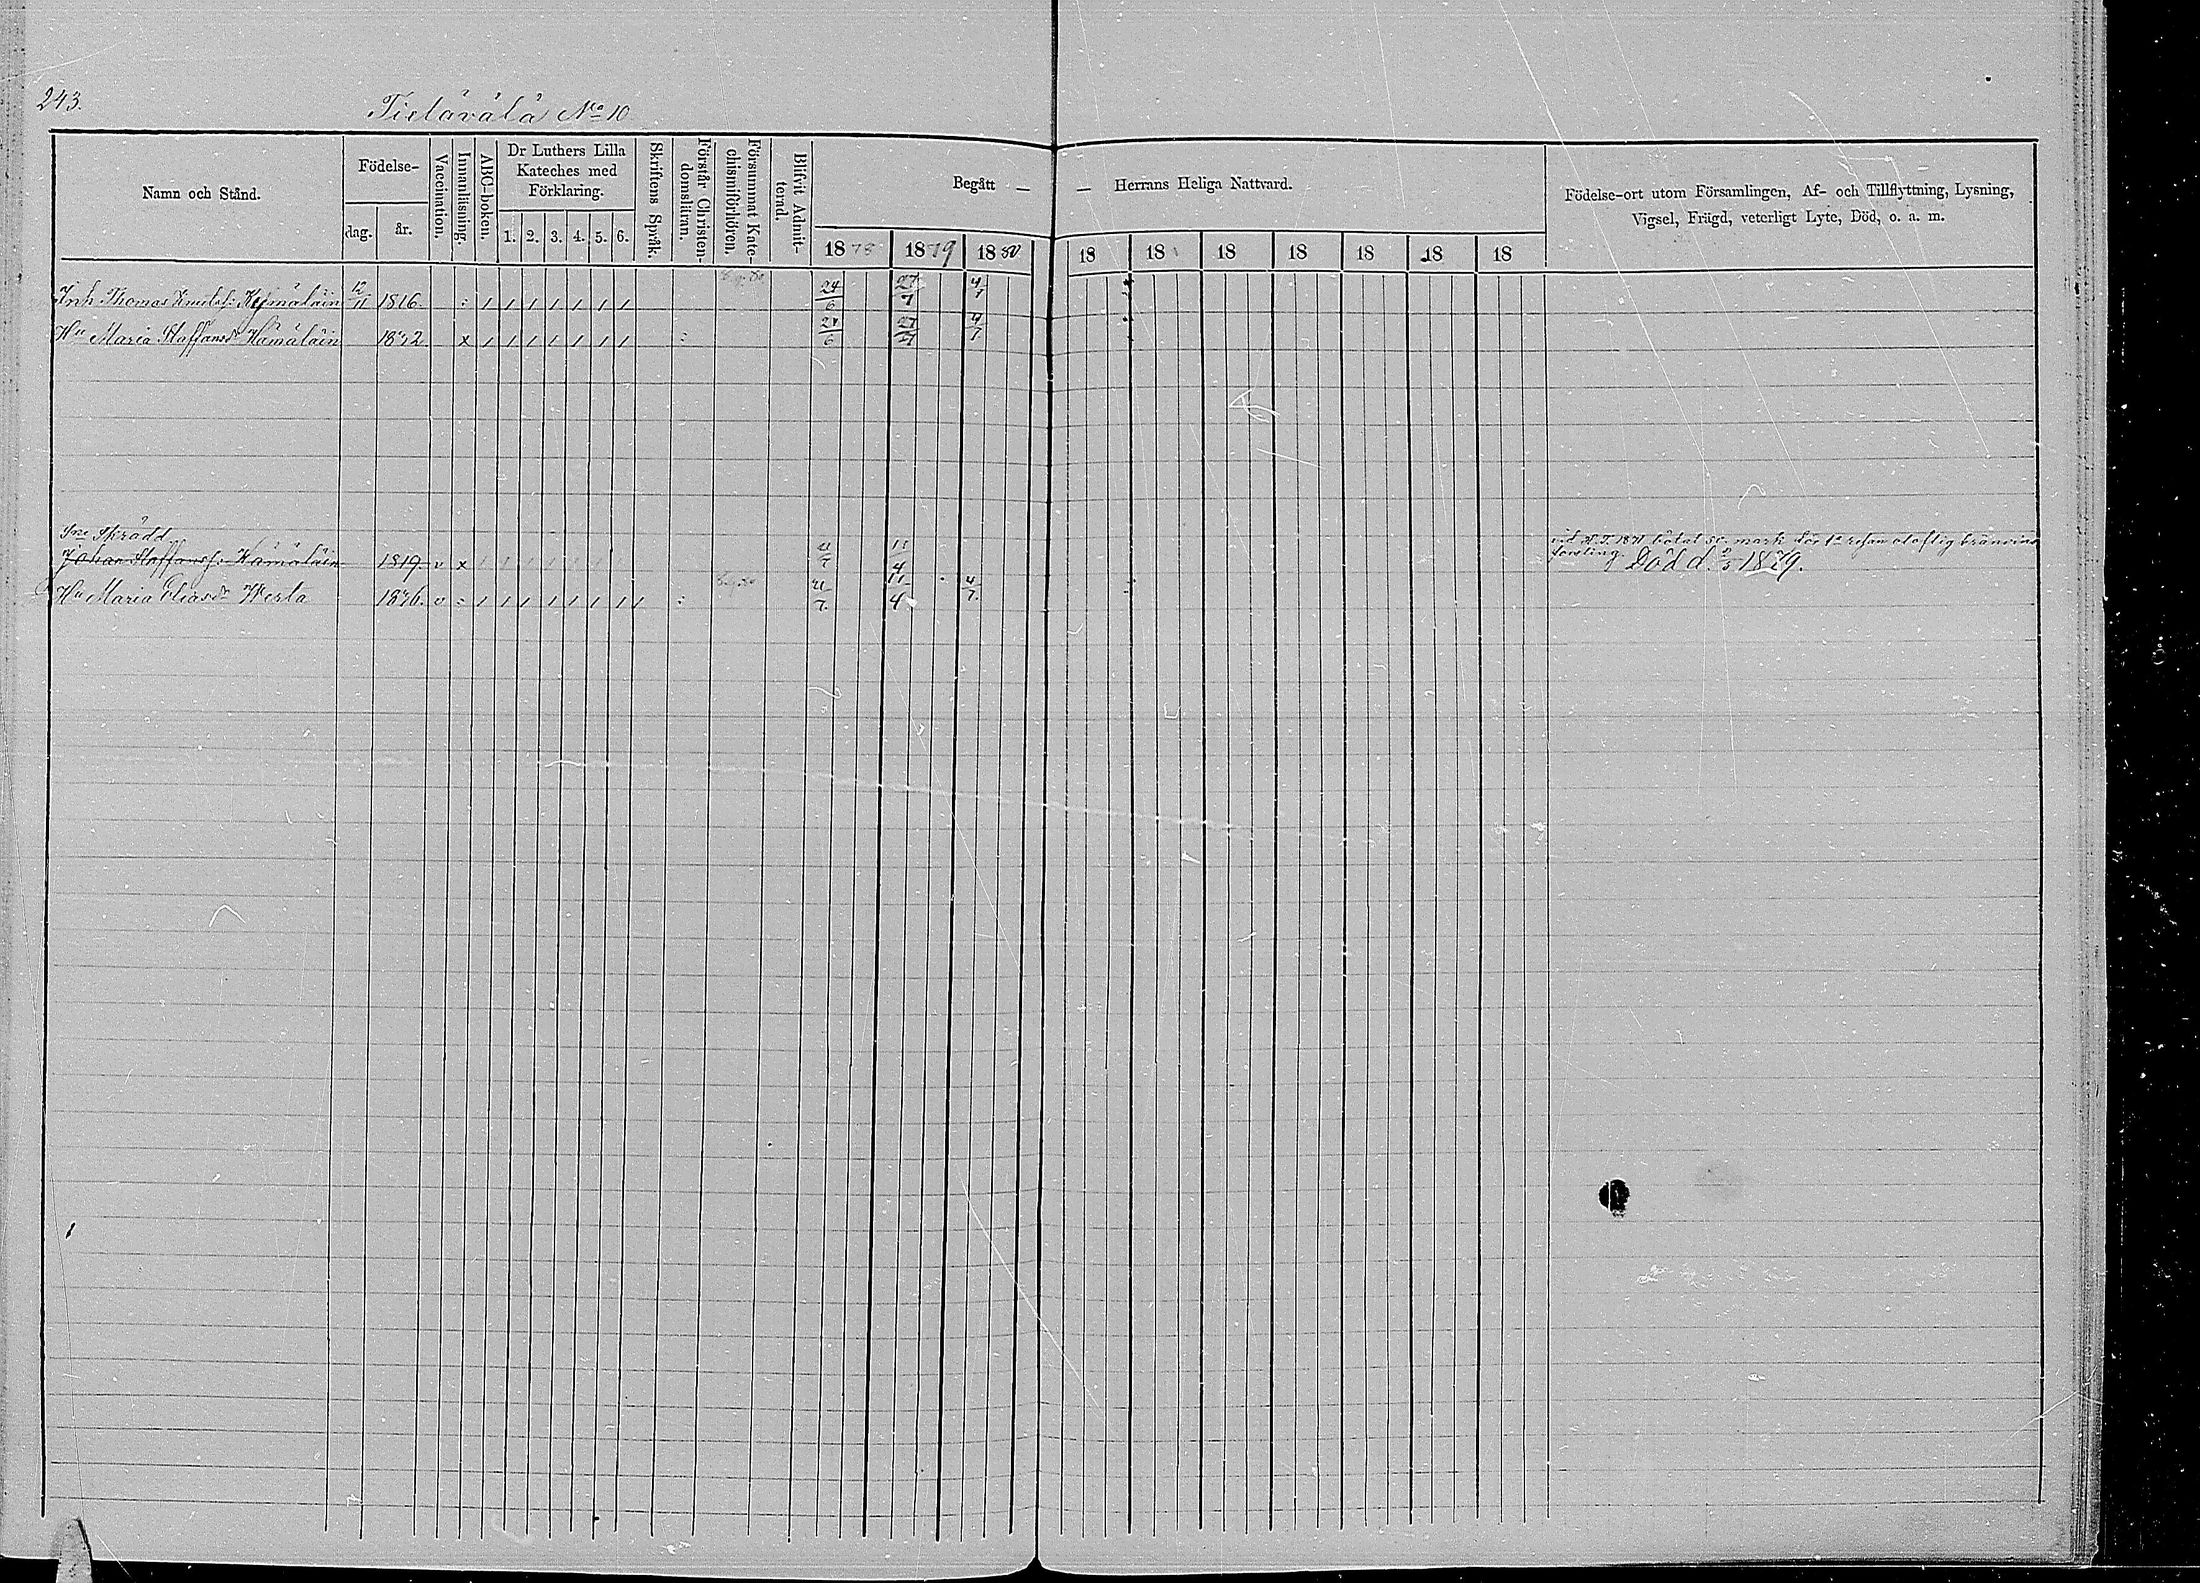 243.
Tielävälä No 10
Namn och Stånd.
Födelse-
dag.
år.
Vaccination.
Innanläsning.
ABC-boken.
Dr Luthers Lilla
Kateches med
Förklaring.
1. 2. 3. 4. 5. 6.
Skriftens Språk.
Förstår Christen-
domsläran.
Försummat Kate-
chismiförhören.
Blifvit Admit-
terad.
Begått — — Herrans Heliga Nattvard.
1878 1879 1880 18 18 18 18 18 18 18
Födelse-ort utom Församlingen, Af- och Tillflyttning, Lysning,
Vigsel, Frägd, veterligt Lyte, Död, o. a. m.
Inh. Thomas Hämäläin 12/11 1816. : / / / / / / / 24/6 27/7 4/7
Hu Maria Staffansdr Hämäläin x / / / / / / / : 24/6 27/7 4/7
Skrädd.
Johan Staffanss: Hämäläin 1819. v x 21/7 11/4 mark för 1a resan olaflig bränvins
Död d. 1879.
Hu Maria Eliasdr Werla v : / / / / / / / : 21/7. 11/4 4/7.